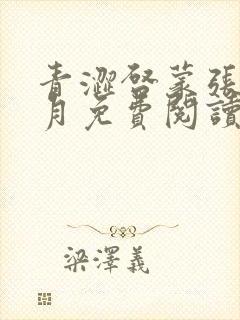 青澀啓蒙張
月免費閱讀
梁澤義